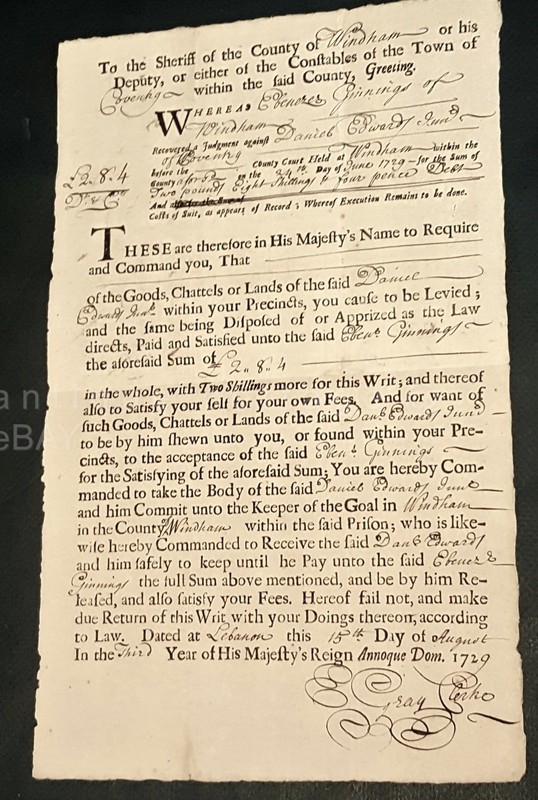 To the Sheriff of the County of Windham or his
Deputy, or either of the Constables of the Town of
Coventry within the said County, Greeting.
WHEREAS Ebenezer Ginnings of
Windham
Recovered a Judgment against Daniel Edwards Junr
of Coventry
before the County Court Held at Windham within the
County aforsd on the 24th Day of June 1729 for the Sum of
Two pounds Eight Shillings & four pence Debt
£2. 8. 4
And
Costs of Suit, as appears of Record; Whereof Execution Remains to be done.
THESE are therefore in His Majesty's Name to Require
and Command you, That
of the Goods, Chattels or Lands of the said Daniel
Edwards Junr within your Precincts, you cause to be Levied;
and the same being Disposed of or Apprized as the Law
directs, Paid and Satisfied unto the said Ebenr Ginnings
the aforesaid Sum of £2. 8. 4
in the whole, with Two Shillings more for this Writ; and thereof
also to Satisfy your self for your own Fees. And for want of
such Goods, Chattels or Lands of the said Danl Edwards Junr
to be by him shewn unto you, or found within your Pre-
cincts, to the acceptance of the said Ebenr Ginnings
for the Satisfying of the aforesaid Sum; You are hereby Com-
manded to take the Body of the said Daniel Edwards Junr
and him Commit unto the Keeper of the Goal in Windham
in the County of Windham within the said Prison; who is like-
wise hereby Commanded to Receive the said Danl Edwards
and him safely to keep until he Pay unto the said Ebenezer
Ginnings the full Sum above mentioned, and be by him Re-
leased, and also satisfy your Fees. Hereof fail not, and make
due Return of this Writ with your Doings thereon, according
to Law. Dated at Lebanon this 15th Day of August
In the Third Year of His Majesty's Reign Annoque Dom. 1729
E Gray Clerke